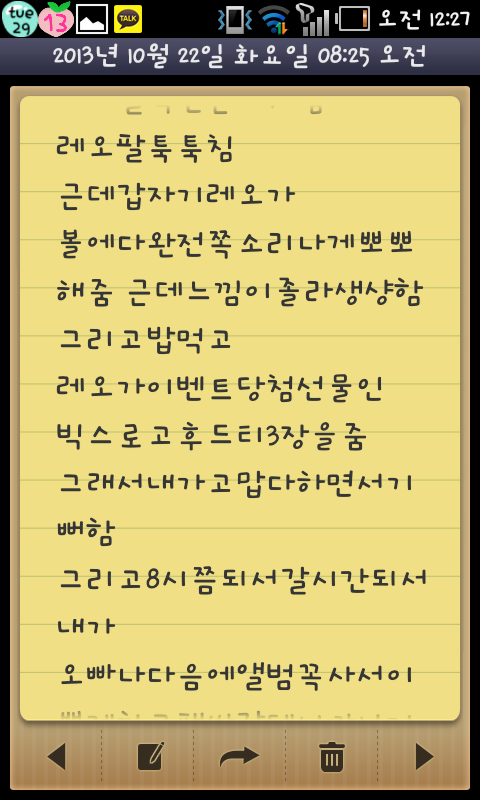 tue 29
13
TALK
오전 12:27
2013년 10월 22일 화요일 08:25 오전
레오팔툭툭침
근데갑자기레오가
볼에다완전쪽소리나게뽀뽀
해줌 근데느낌이졸라생샹함
그리고밥먹고
레오가이벤트당첨선물인
빅스로고후드티3장을줌
그래서내가고맙다하면서기
뻐함
그리고8시쯤되서갈시간되서
내가
오빠나다음에앨범꼭사서이